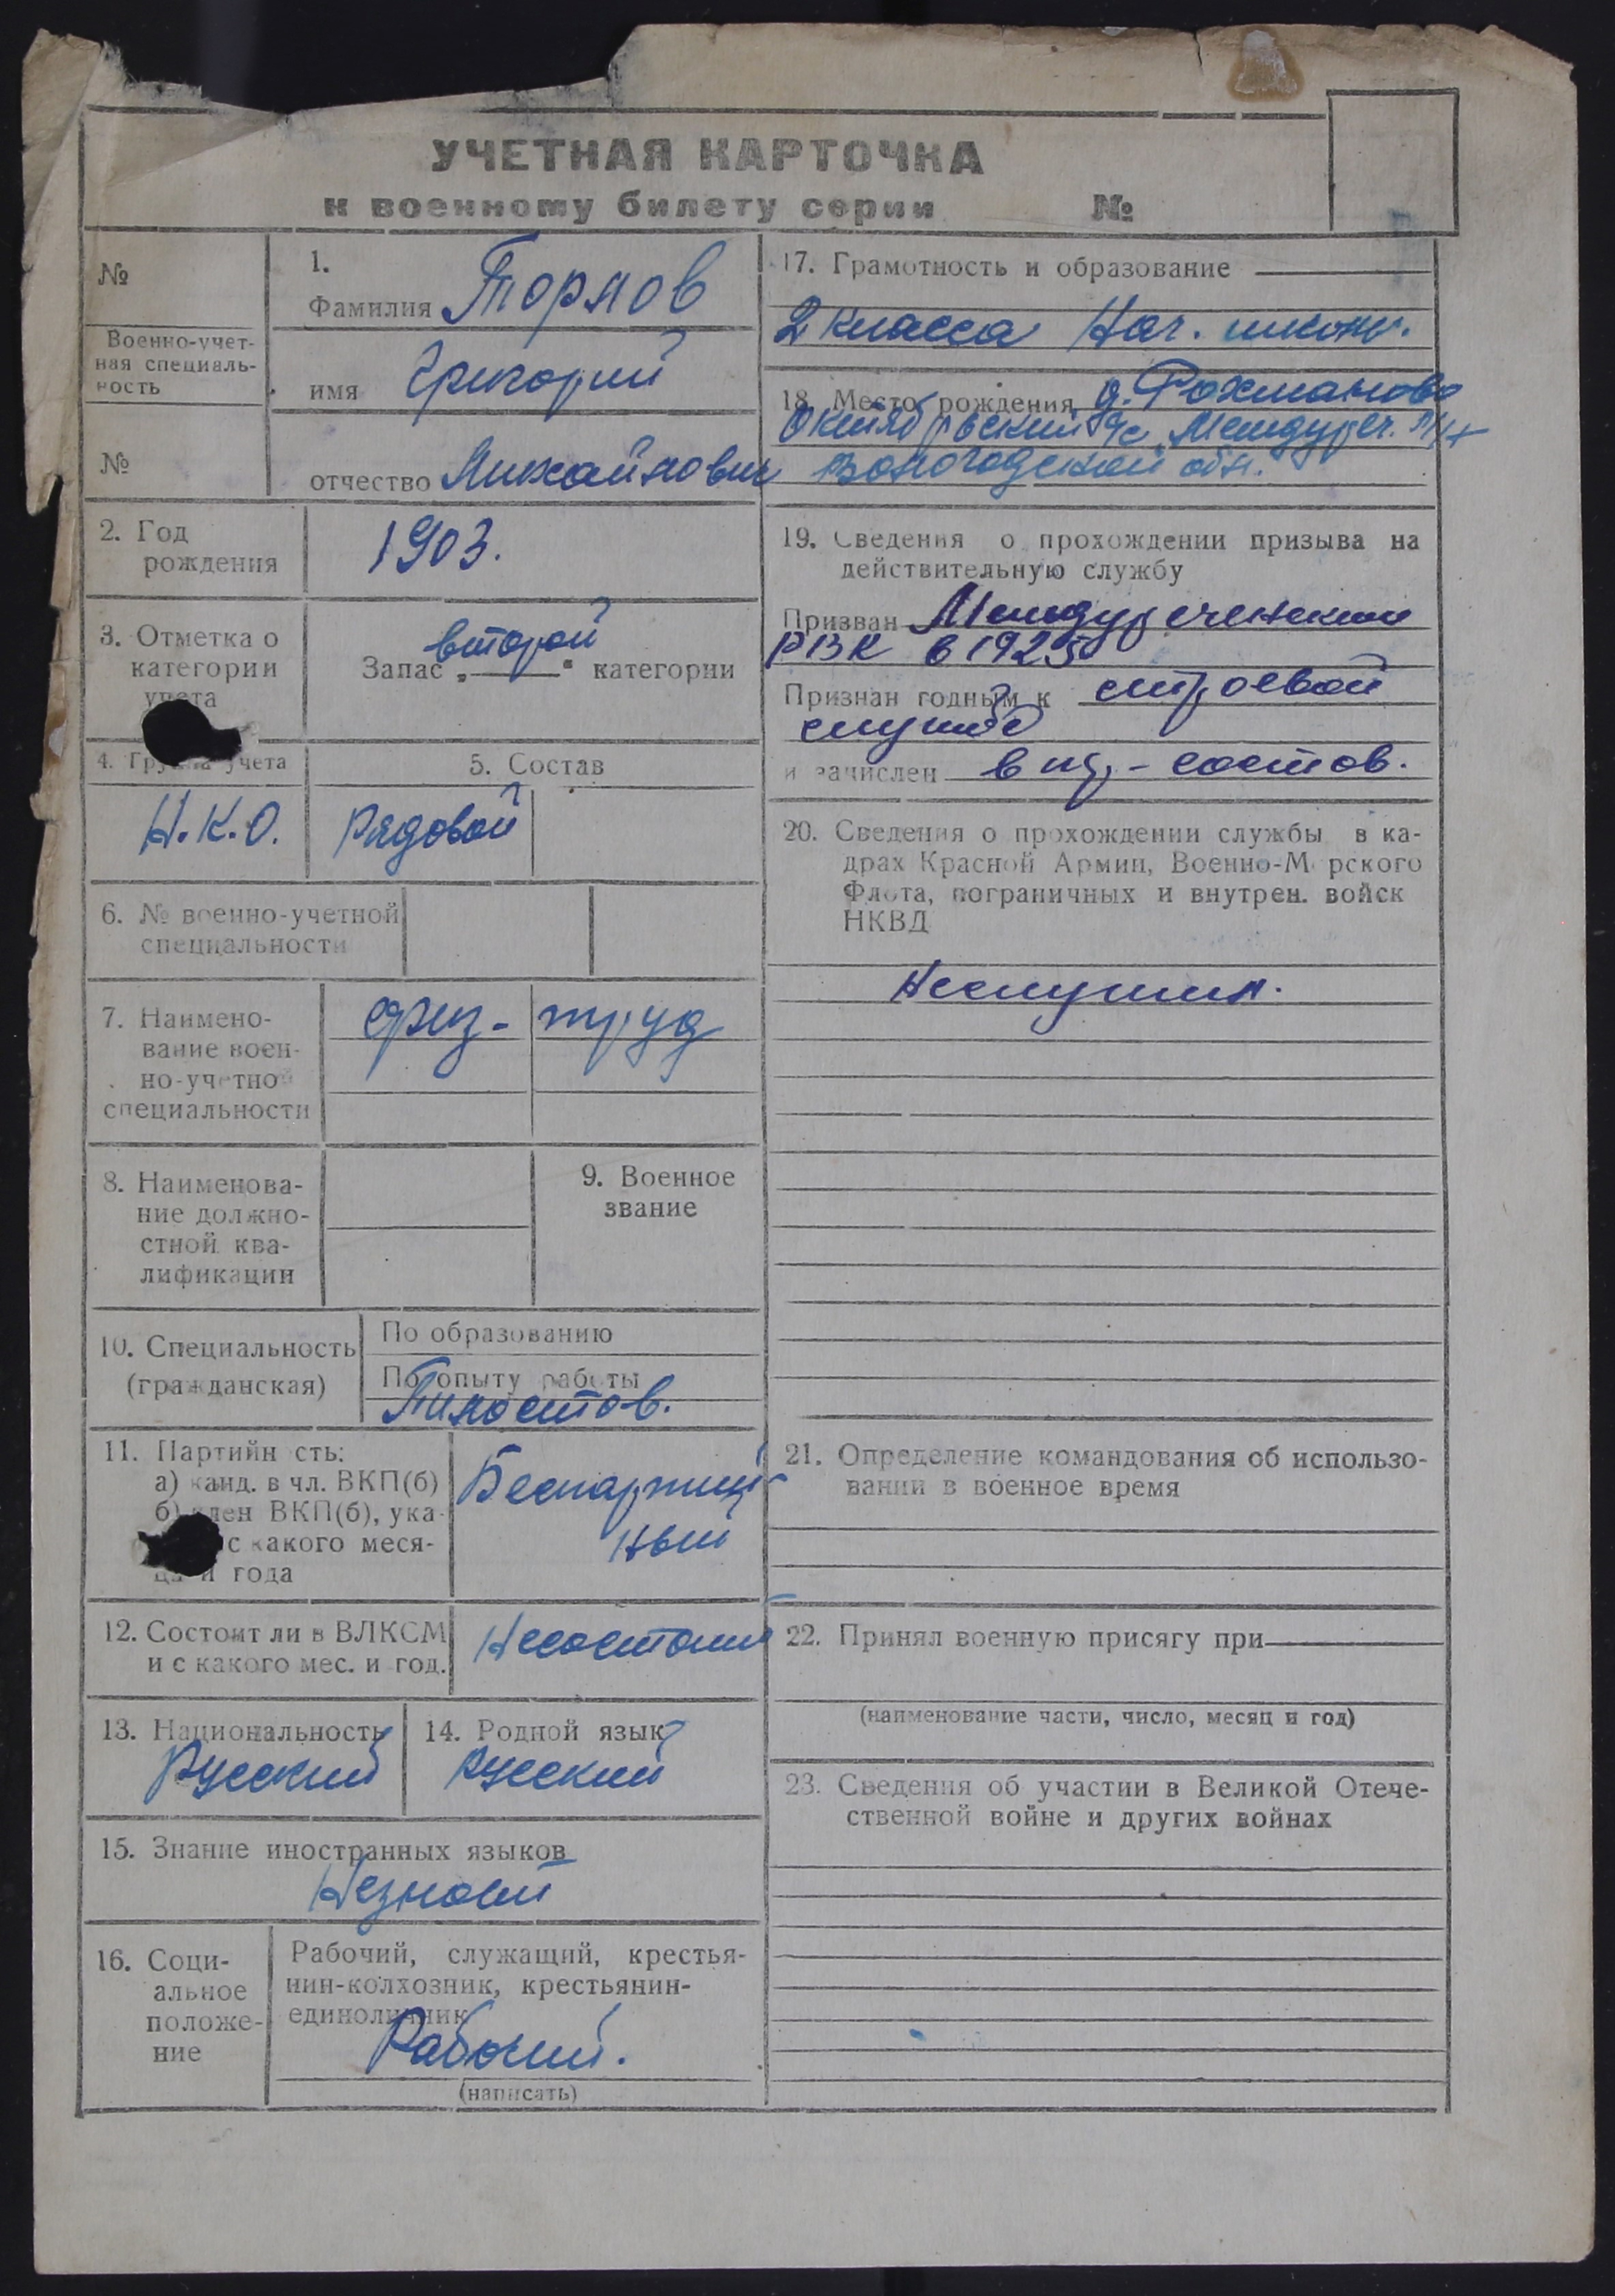 УЧЕТНАЯ КАРТОЧКА
к военному билету серии №
№
Военно-учет-
ная специаль-
ность
№
1.
Фамилия Торлов
имя Григорий
отчество Михайлович
2. Год
рождения
1903.
3. Отметка о
категории
учета
Запас „второй“ категории
4. Группа учета
Н.К.О.
5. Состав
Рядовой
6. № военно-учетной
специальности
7. Наимено-
вание воен-
но-учетной
специальности
физ- труд
8. Наименова-
ние должно-
стной ква-
лификации
9. Военное
звание
10. Специальность
(гражданская)
По образованию
По опыту работы
11. Партийн сть:
а) канд. в чл. ВКП(б)
б) член ВКП(б), ука-
с какого меся-
ца и года
Беспартий
ный
12. Состоит ли в ВЛКСМ
и с какого мес. и год.
Несостоит
13. Национальность
Русский
14. Родной язык
Русский
15. Знание иностранных языков
Незнает
16. Соци-
альное
положе-
ние
Рабочий, служащий, крестья-
нин-колхозник, крестьянин-
единоличник
Рабочий.
(написать)
17. Грамотность и образование
2 класса Нач. школы.
18. Место рождения д. Рохманово
Октябрьский с/с Междуреч. р/н
Вологодской обл.
19. Сведения о прохождении призыва на
действительную службу
Призван Междуреченским
РВК в 1925
Признан годным к строевой
службе
и зачислен в ряд-состав.
20. Сведения о прохождении службы в ка-
драх Красной Армии, Военно-М рского
Флота, пограничных и внутрен. войск
НКВД
Неслужил.
21. Определение командования об использо-
вании в военное время
22. Принял военную присягу при
(наименование части, число, месяц и год)
23. Сведения об участии в Великой Отече-
ственной войне и других войнах